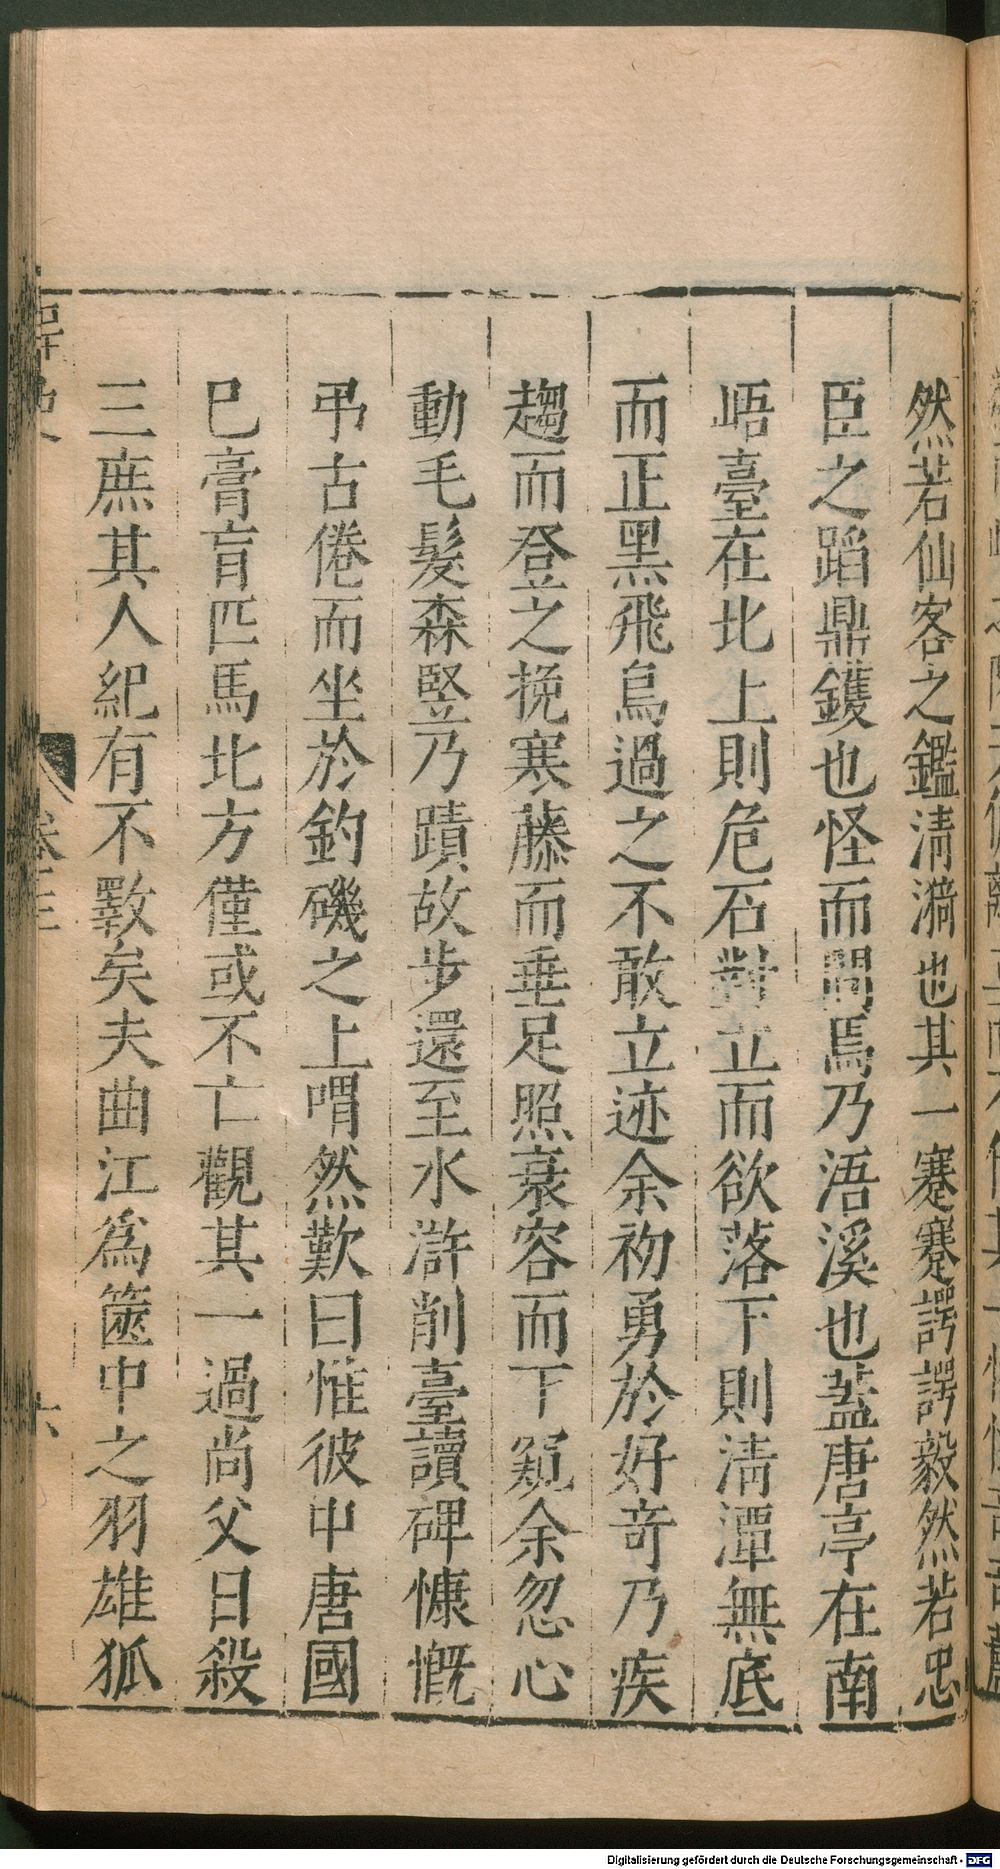 然若仙客之鑑清漪也其一蹇蹇諤諤毅然若忠
臣之蹈鼎鑊也怪而問焉乃浯溪也蓋唐亭在南
峿臺在北上則危石對立而欲落下則清潭無底
而正黑飛鳥過之不敢立迹余初勇於好奇乃疾
趨而登之挽寒藤而垂足照衰容而下窺余忽心
動毛髮森豎乃蹟故步還至水滸削臺讀碑慷慨
弔古倦而坐於釣磯之上喟然歎曰惟彼中唐國
巳膏肓匹馬北方僅或不亡觀其一過尚父日殺
三庶其人紀有不斁矣夫曲江爲篋中之羽雄狐
卷三
六
Digitalisierung gefördert durch die Deutsche Forschungsgemeinschaft - DFG